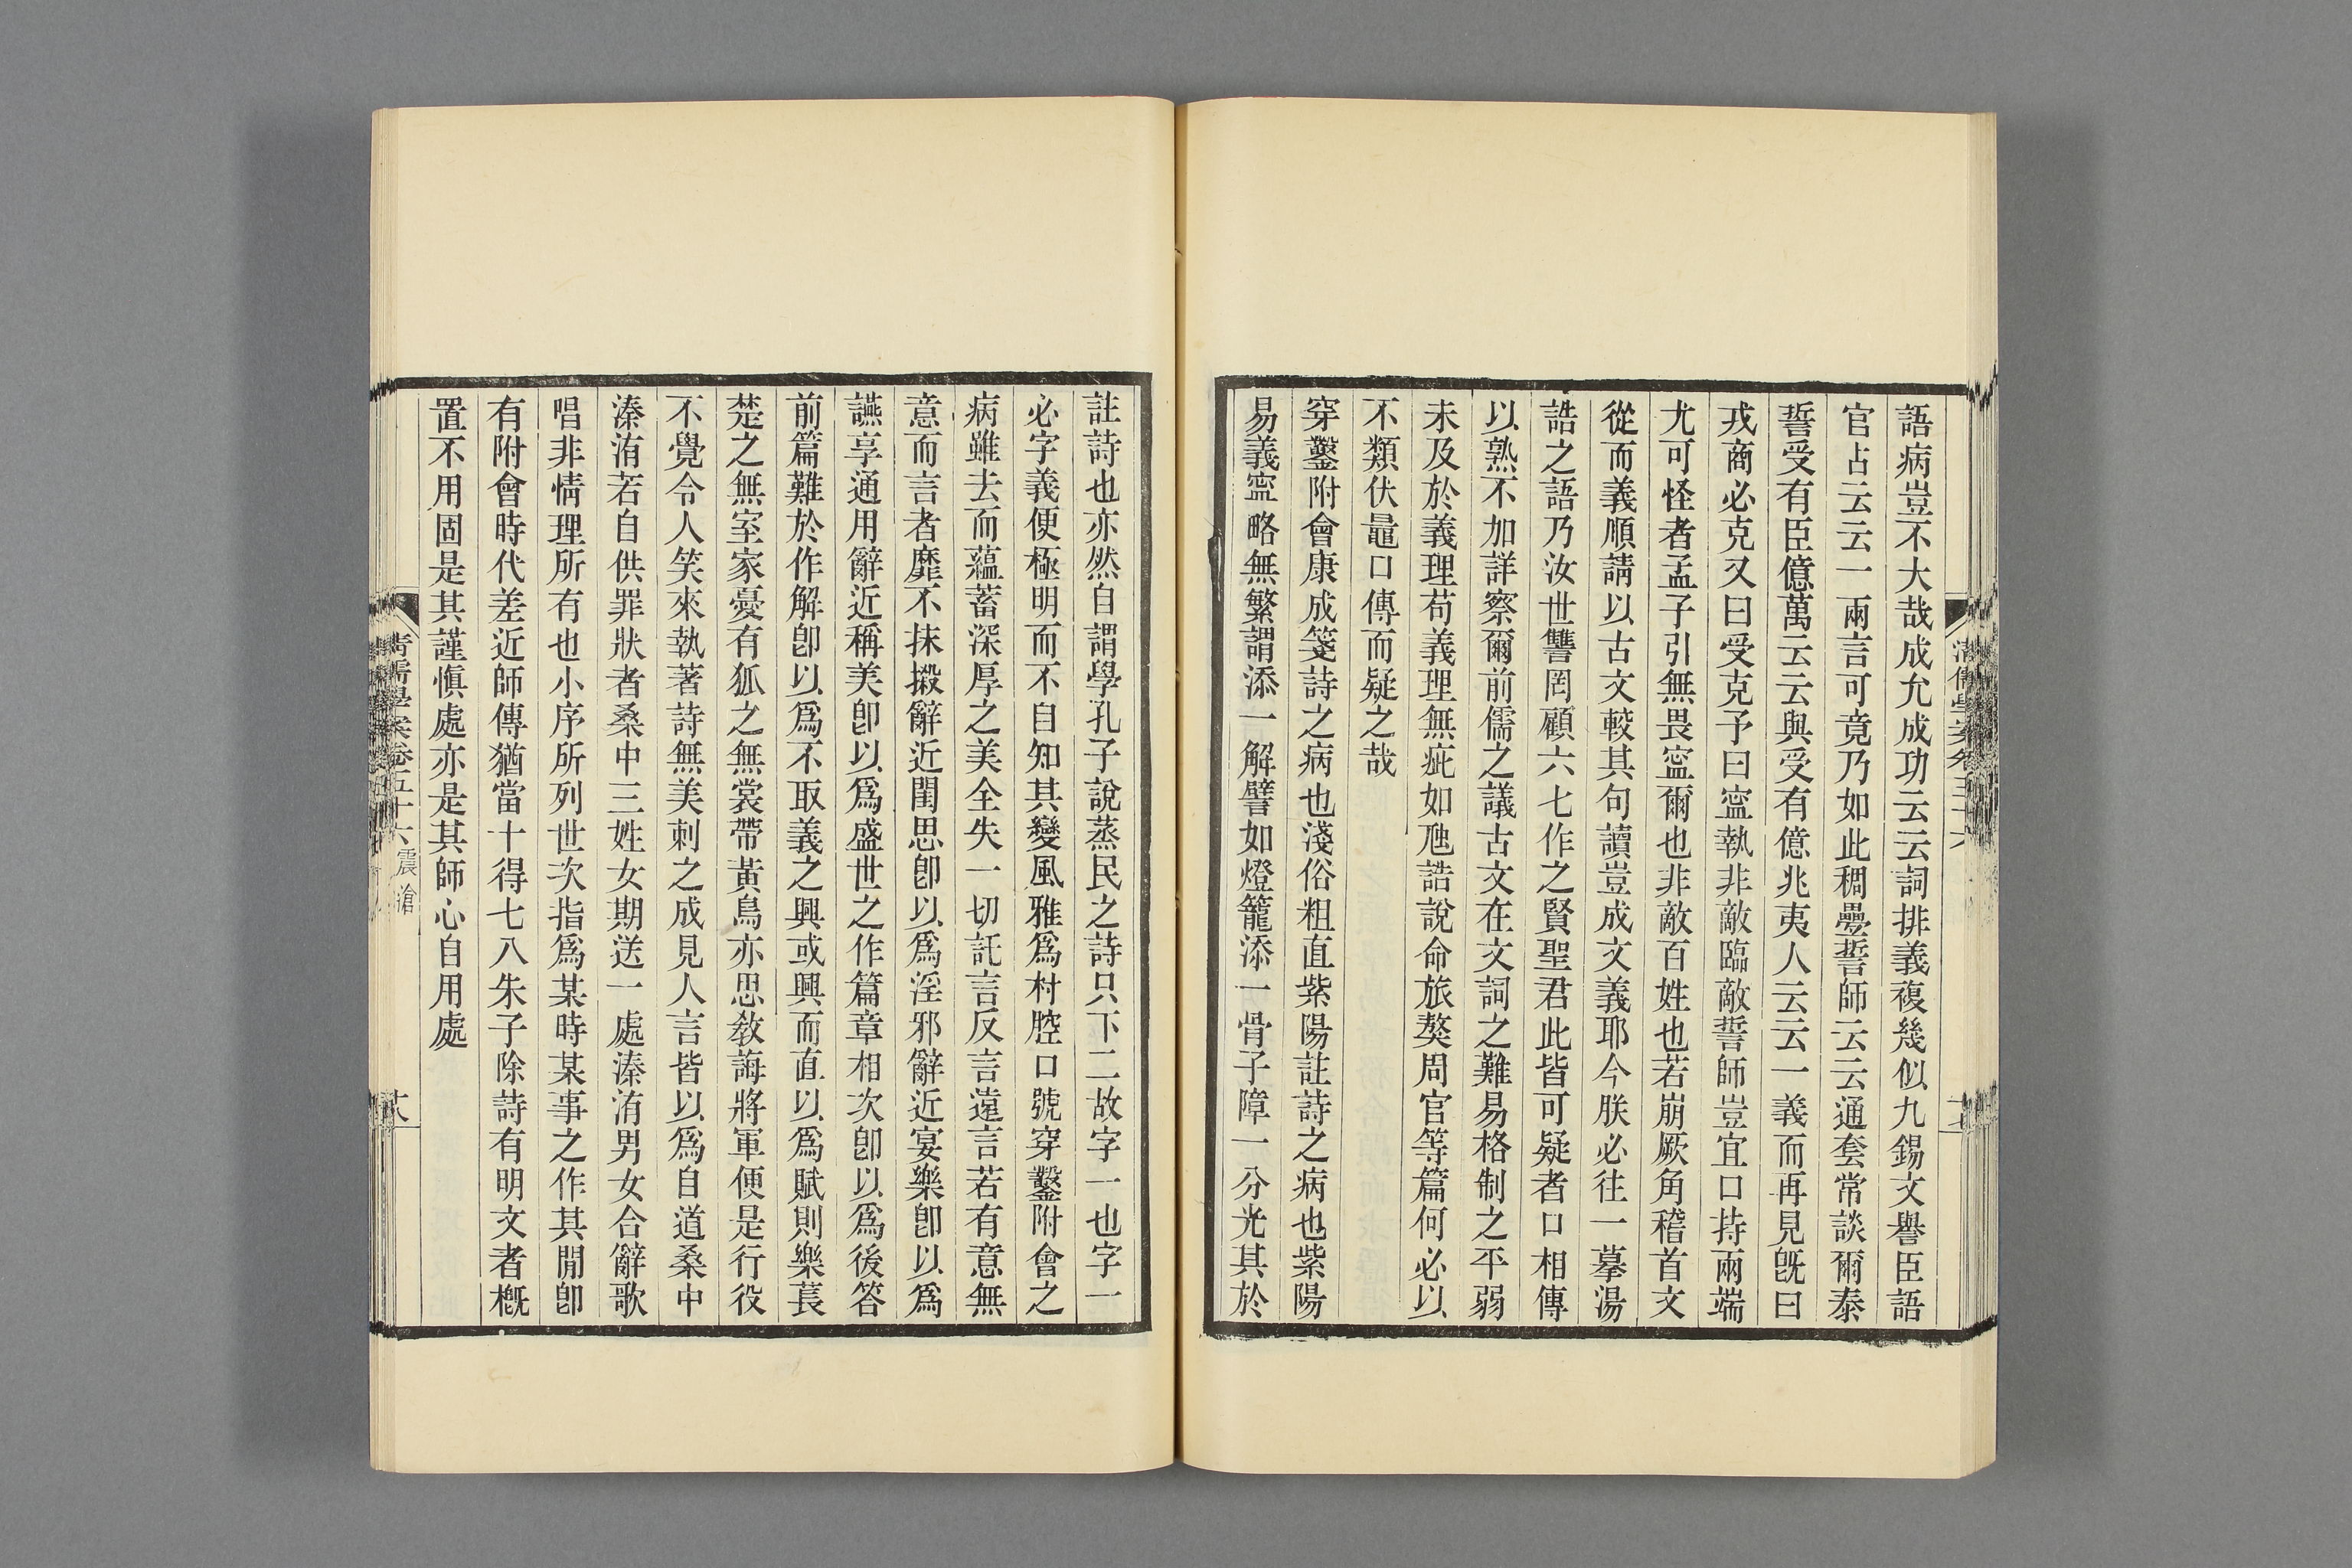 語病豈不大哉成允成功云云詞排義複幾似九錫文譽臣語
官占云云一兩言可竟乃如此稠疊誓師云云通套常談爾泰
誓受有臣億萬云云與受有億兆夷人云云一義而再見旣曰
戎商必克又曰受克予曰寍執非敵臨敵誓師豈宜口持兩端
尤可怪者孟子引無畏寍爾也非敵百姓也若崩厥角稽首文
從而義順請以古文較其句讀豈成文義耶今朕必往一摹湯
誥之語乃汝世讐罔顧六七作之賢聖君此皆可疑者口相傳
以熟不加詳察爾前儒之議古文在文詞之難易格制之平弱
未及於義理苟義理無疵如虺誥說命旅獒周官等篇何必以
不類伏鼂口傳而疑之哉
穿鑿附會康成箋詩之病也淺俗粗直紫陽註詩之病也紫陽
易義寍略無繁謂添一解譬如燈籠添一骨子障一分光其於
註詩也亦然自謂學孔子說蒸民之詩只下二故字一也字一
必字義便極明而不自知其變風雅爲村腔口號穿鑿附會之
病雖去而蘊蓄深厚之美全失一切託言反言遠言若有意無
意而言者靡不抹摋辭近閨思卽以爲淫邪辭近宴樂卽以爲
讌享通用辭近稱美卽以爲盛世之作篇章相次卽以爲後答
前篇難於作解卽以爲不取義之興或興而直以爲賦則樂萇
楚之無室家憂有狐之無裳帶黃鳥亦思敎誨將軍便是行役
不覺令人笑來執著詩無美刺之成見人言皆以爲自道桑中
溱洧若自供罪狀者桑中三姓女期送一處溱洧男女合辭歌
唱非情理所有也小序所列世次指爲某時某事之作其閒卽
有附會時代差近師傳猶當十得七八朱子除詩有明文者槪
置不用固是其謹愼處亦是其師心自用處
清儒學案卷五十六 震滄